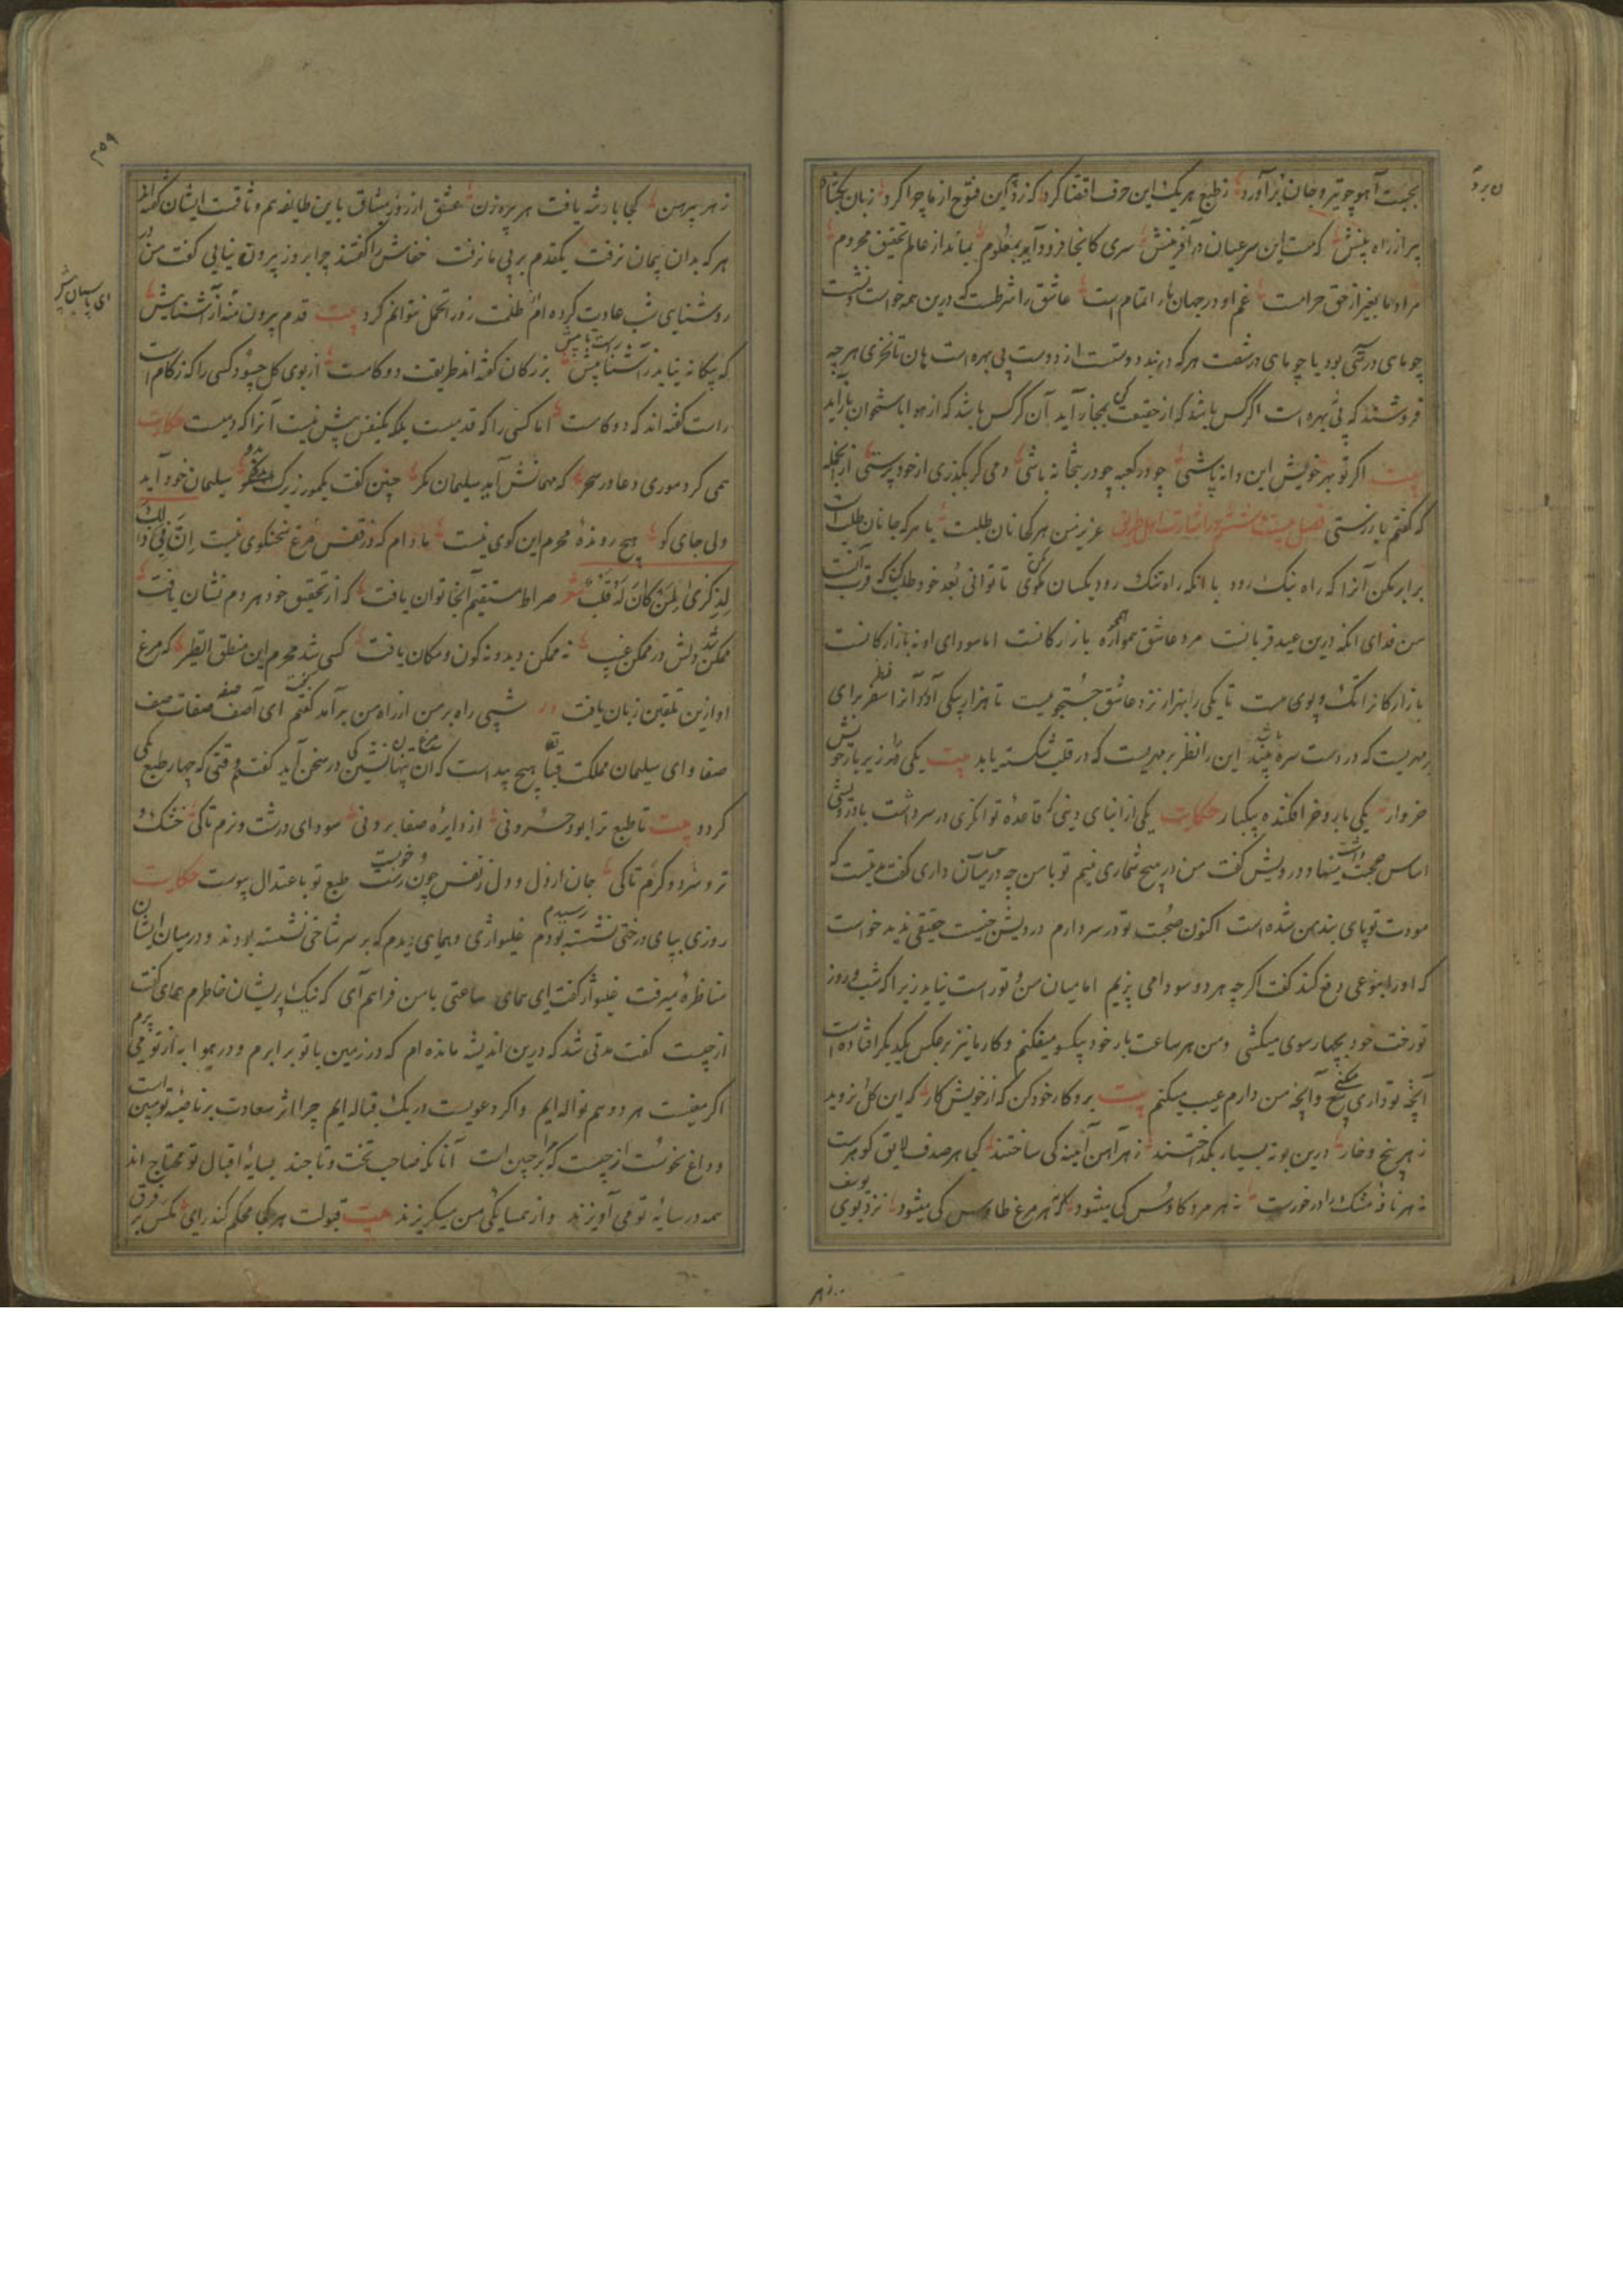 بجست آهو چو تیر و جان برآورد ز طبع هر یک این حرف اقتضا کرد که زد این فتوح از ما چرا کرد زبان بگشاد
پیر از راه بینش که هست این سر عیان در آفرینش سری کانجا فرود آید بمعلوم بماند از عالم تحقیق محروم
مراد ما بغیر از حق حرامست غم او در جهان ما را تمام است عاشق را شرطست که درین همه خواست و نشست
چو ماهی در شست بود یا چو ماهی در شست هر که در بند دوستست از دوست بی بهره است هان تا نخری هر چه
فروشند که بی بهره است اگر کس باشد که از حقیقت بمجاز آید آن کرکس باشد که از هوا باستخوان باز آید
بیت اگر تو بهر خویش این دانه پاشی چو در کعبه چو در بتخانه باشی دمی گر بگذری از خود پرستی از آنجمله
که گفتم باز رستی فصل بیست و ششم در اشارت اهل طریق عزیز من هر که نان طلبست با هر که جانان طلب است
برابر مکن آنرا که راه نیک رود با آنکه راه تنک رود یکسان مگوی تا توانی بعد خود طلب کن که قرب آنست
من فدای آنکه درین عید قربانست مرد عاشق همواره بازارگانست اما سودای او نه بازارگانست
بازارگانرا تک و پوی هست تا یکی را بهزار نزد عاشق جستجویست تا هزار بیکی آرد آنرا سفر برای
مهریست که در دست سره بیند این را نظر بر مهریست که در قلب شکسته یابد بیت یکی در زیر بار خویش
خروار یکی بار و خر افکنده بیکبار حکایت یکی از ابنای دینی که قاعده توانگری در سر داشت با درویشی
اساس محبت مینهاد درویش گفت من در هیچ شماری نیم تو با من چه در میان داری گفت مدتیست که
مودت تو پای بند من شده است اکنون صحبت تو در سر دارم درویش جنسیت حقیقی ندید خواست
که او را بنوعی دفع کند گفت اگر چه هر دو سودا می پزیم اما میان من و تو راست نیاید زیرا که شب و روز
تو رخت خود بچهار سوی میکشی و من هر ساعت بار خود بیکسو میفکنم و کار ما نیز بر عکس یکدیگر افتاده است
آنچه تو داری من عیب میکنم و آنچه من دارم عیب میکنی بیت برو کار خود کن که از خویش کار که این گل نروید
ز هر بیخ و خار درین بوته بسیار بگداختند ز هر آهن آینه کی ساختند کجا هر صدف لایق گوهرست
نه هر ناف مشک را درخورست نه هر مرد کاوس کی میشود کجا هر مرغ طاوس کی میشود نزد بوی یوسف
ز هر
ز هر پیرهن کجا با دشه یافت هر پیره زن عشق از روز میثاق باین طایفه هم وثاقست ایشان گفته اند
هر که بدان پیمان نرفت یکقدم بر پی ما نرفت خفاش را گفتند چرا بروز بیرون نیایی گفت من در
روشنایی شب عادت کرده ام ظلمت روز را تحمل نتوانم کرد بیت قدم بیرون منه از آشنایش
که بیگانه نیاید راست با آشنا پیش بزرگان گفته اند طریقت دو گامست از بوی گل چه سود کسی را که زکام است
راست گفته اند که دو گامست اما کسی را که قدمیست بلکه یکنفس بیش نیست آنرا که دمیست حکایت
همی کرد موری دعا در سحر که مهمانش آید سلیمان مگر چنین گفت یکمور زیرک بدو سلیمان خود آید
ولی جای کو هیچ رونده محرم این کوی نیست مادام که در قفس مرغ سخنگوی نیست اِنَّ فی ذلک
لِذِکْری لِمَنْ کانَ لَهُ قَلْبٌ شعر صراط مستقیم آنجا توان یافت که از تحقیق خود مردم نشان یافت
ممکن شد دلش در ممکن غیب نه ممکن دید و نه کون و مکان یافت کسی شد محرم این منطق الطیر که مرغ
او ازین تلقین زبان یافت شبی راه بر من از راه من برآمد گفتم ای آصف صفه صفات صف
صفا و ای سلیمان مملکت بقا هیچ پیداست که آن مرغ پنهان نشین کی در سخن آید گفت وقتی که چهار طبع یکی
گردد بیت تا طبع ترا بود حرونی از دایره صفا برونی سودای درشت و نرم تا کی خشک و
تر و سرد و گرم تا کی جان از دل و دل ز نفس چون رست و خوب رست طبع تو باعتدال پیوست حکایت
روزی بپای درختی رسیدم نشسته بودم غلیواژی و همای دیدم که بر سر شاخی نشسته بودند و در میان ایشان
مناظره میرفت غلیواژ گفت ای همای ساعتی با من فراهم آی که نیک پریشان خاطرم همای گفت
از چیست گفت مدتی شد که درین اندیشه مانده ام که در زمین با تو برابرم و در هوا به از تو می پرم
اگر معنیست هر دو هم نواله ایم و اگر دعویست در یک قباله ایم چرا اثر سعادت بر ناصیه تو مبین است
و داغ نحوست از چیست که بر جبین است آنانکه صاحب تخت و تاجند بسایه اقبال تو محتاج اند
همه در سایه تو می آویزند و از همسایگی من میگریزند بیت قبولت هر کجا محکم کند رای مگس بر فرق